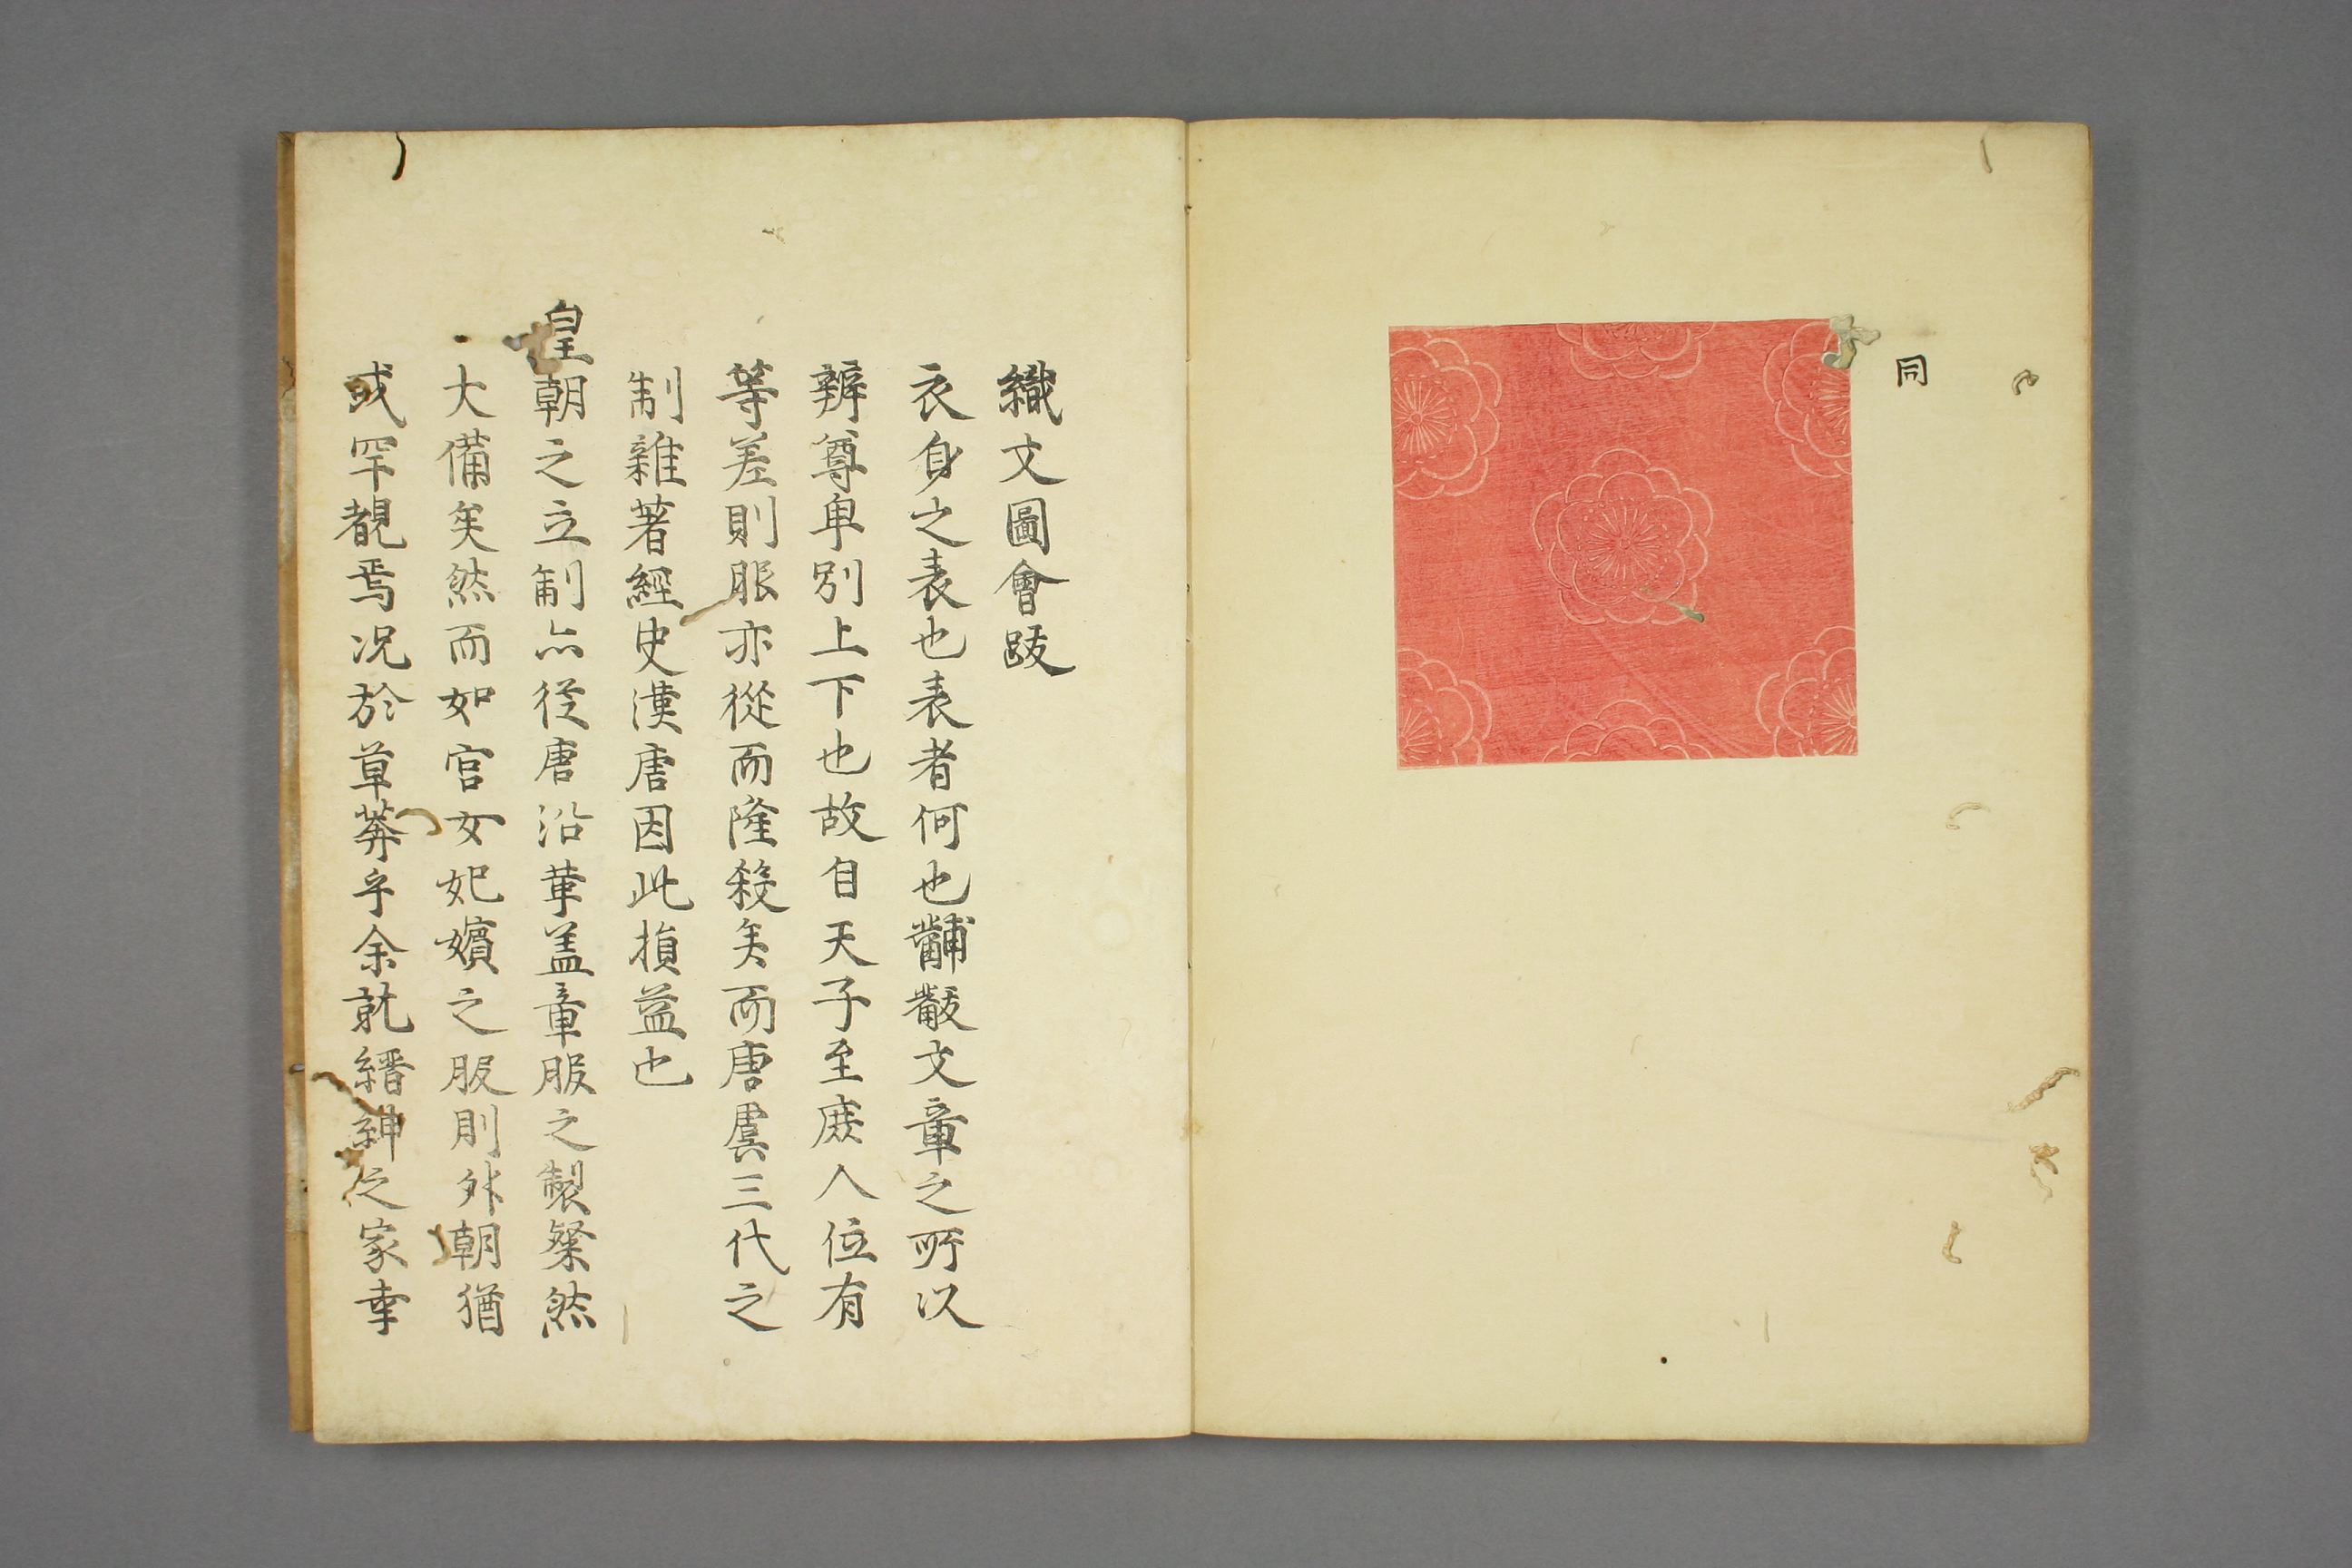 同
織文圖會跋
衣身之表也表者何也黼黻文章之所以
辨尊卑別上下也故自天子至庶人位有
等差則服亦從而隆殺矣而唐虞三代之
制雜著經史漢唐因此損益也
皇朝之立制亦從唐沿革蓋章服之製粲然
大備矣然而如宮女妃嬪之服則外朝猶
或罕覩焉况於草莽乎余就縉紳之家幸